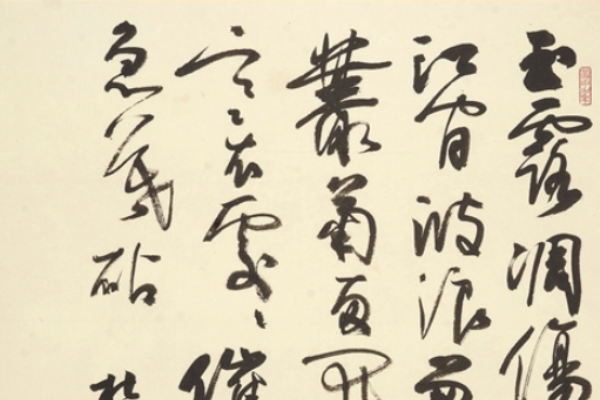 玉露凋傷
江間波浪
叢菊兩開
寒衣處〻催
急暮砧